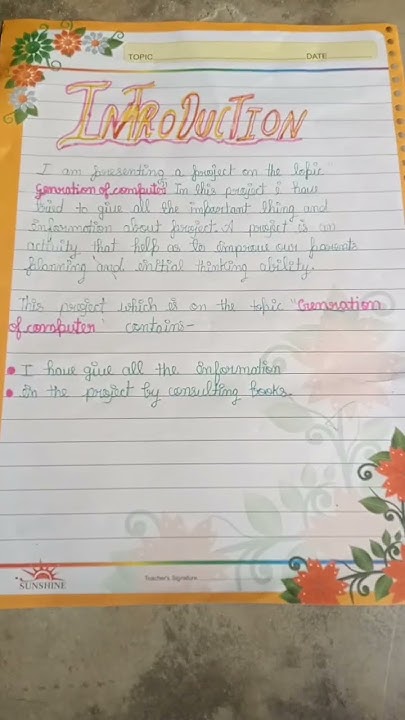 TOPIC
DATE
INTRODUCTION
I am presenting a project on the topic
Genration of computer In this project I have
tried to give all the important thing and
information about project. A project is an
activity that help as to improve our parents
planning and initial thinking ability.
This project which is on the topic "Genration
of computer" contains-
I have give all the information
in the project by consulting books.
SUNSHINE
Teacher's Signature